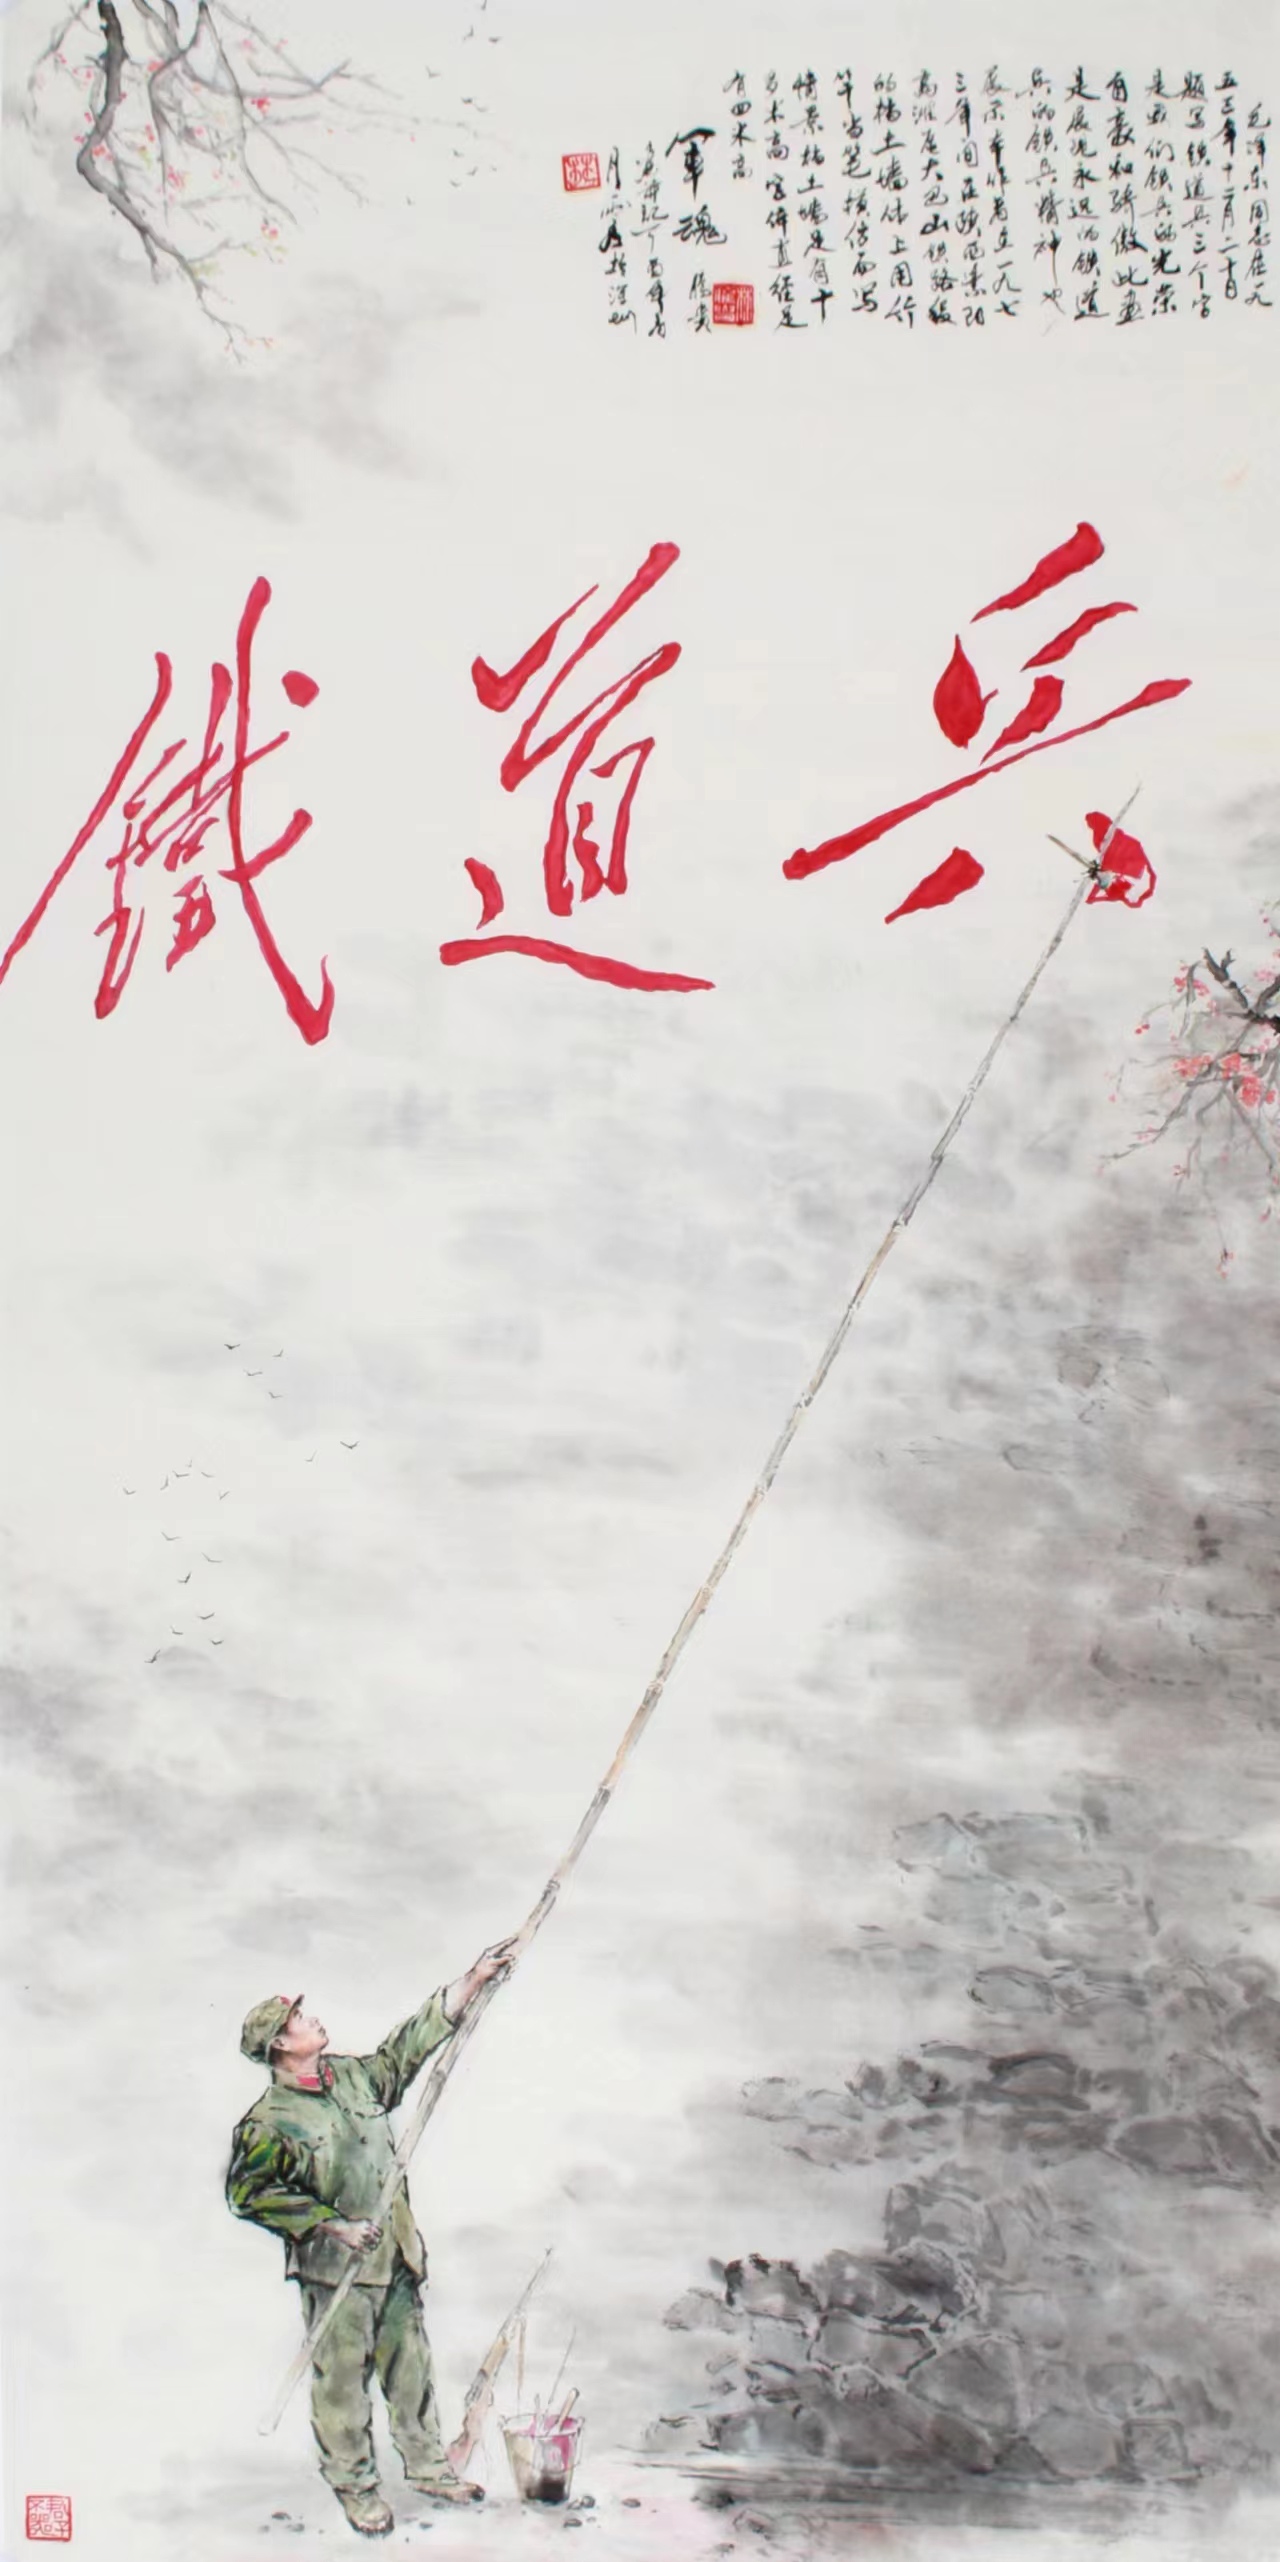 毛泽东同志在一九
五三年十二月二十日
题写铁道兵三个字
是我们铁兵的光荣
自豪和骄傲此画
是展现永远的铁道
兵的铁兵精神也
展示本作者在一九七
三年间在陕西紫阳
高滩座大巴山铁路段
的档土墙体上用竹
竿当笔模仿而写
情景档土墙足有十
多米高字体直径足
有四米高
军魂
月于深圳
鐵道兵